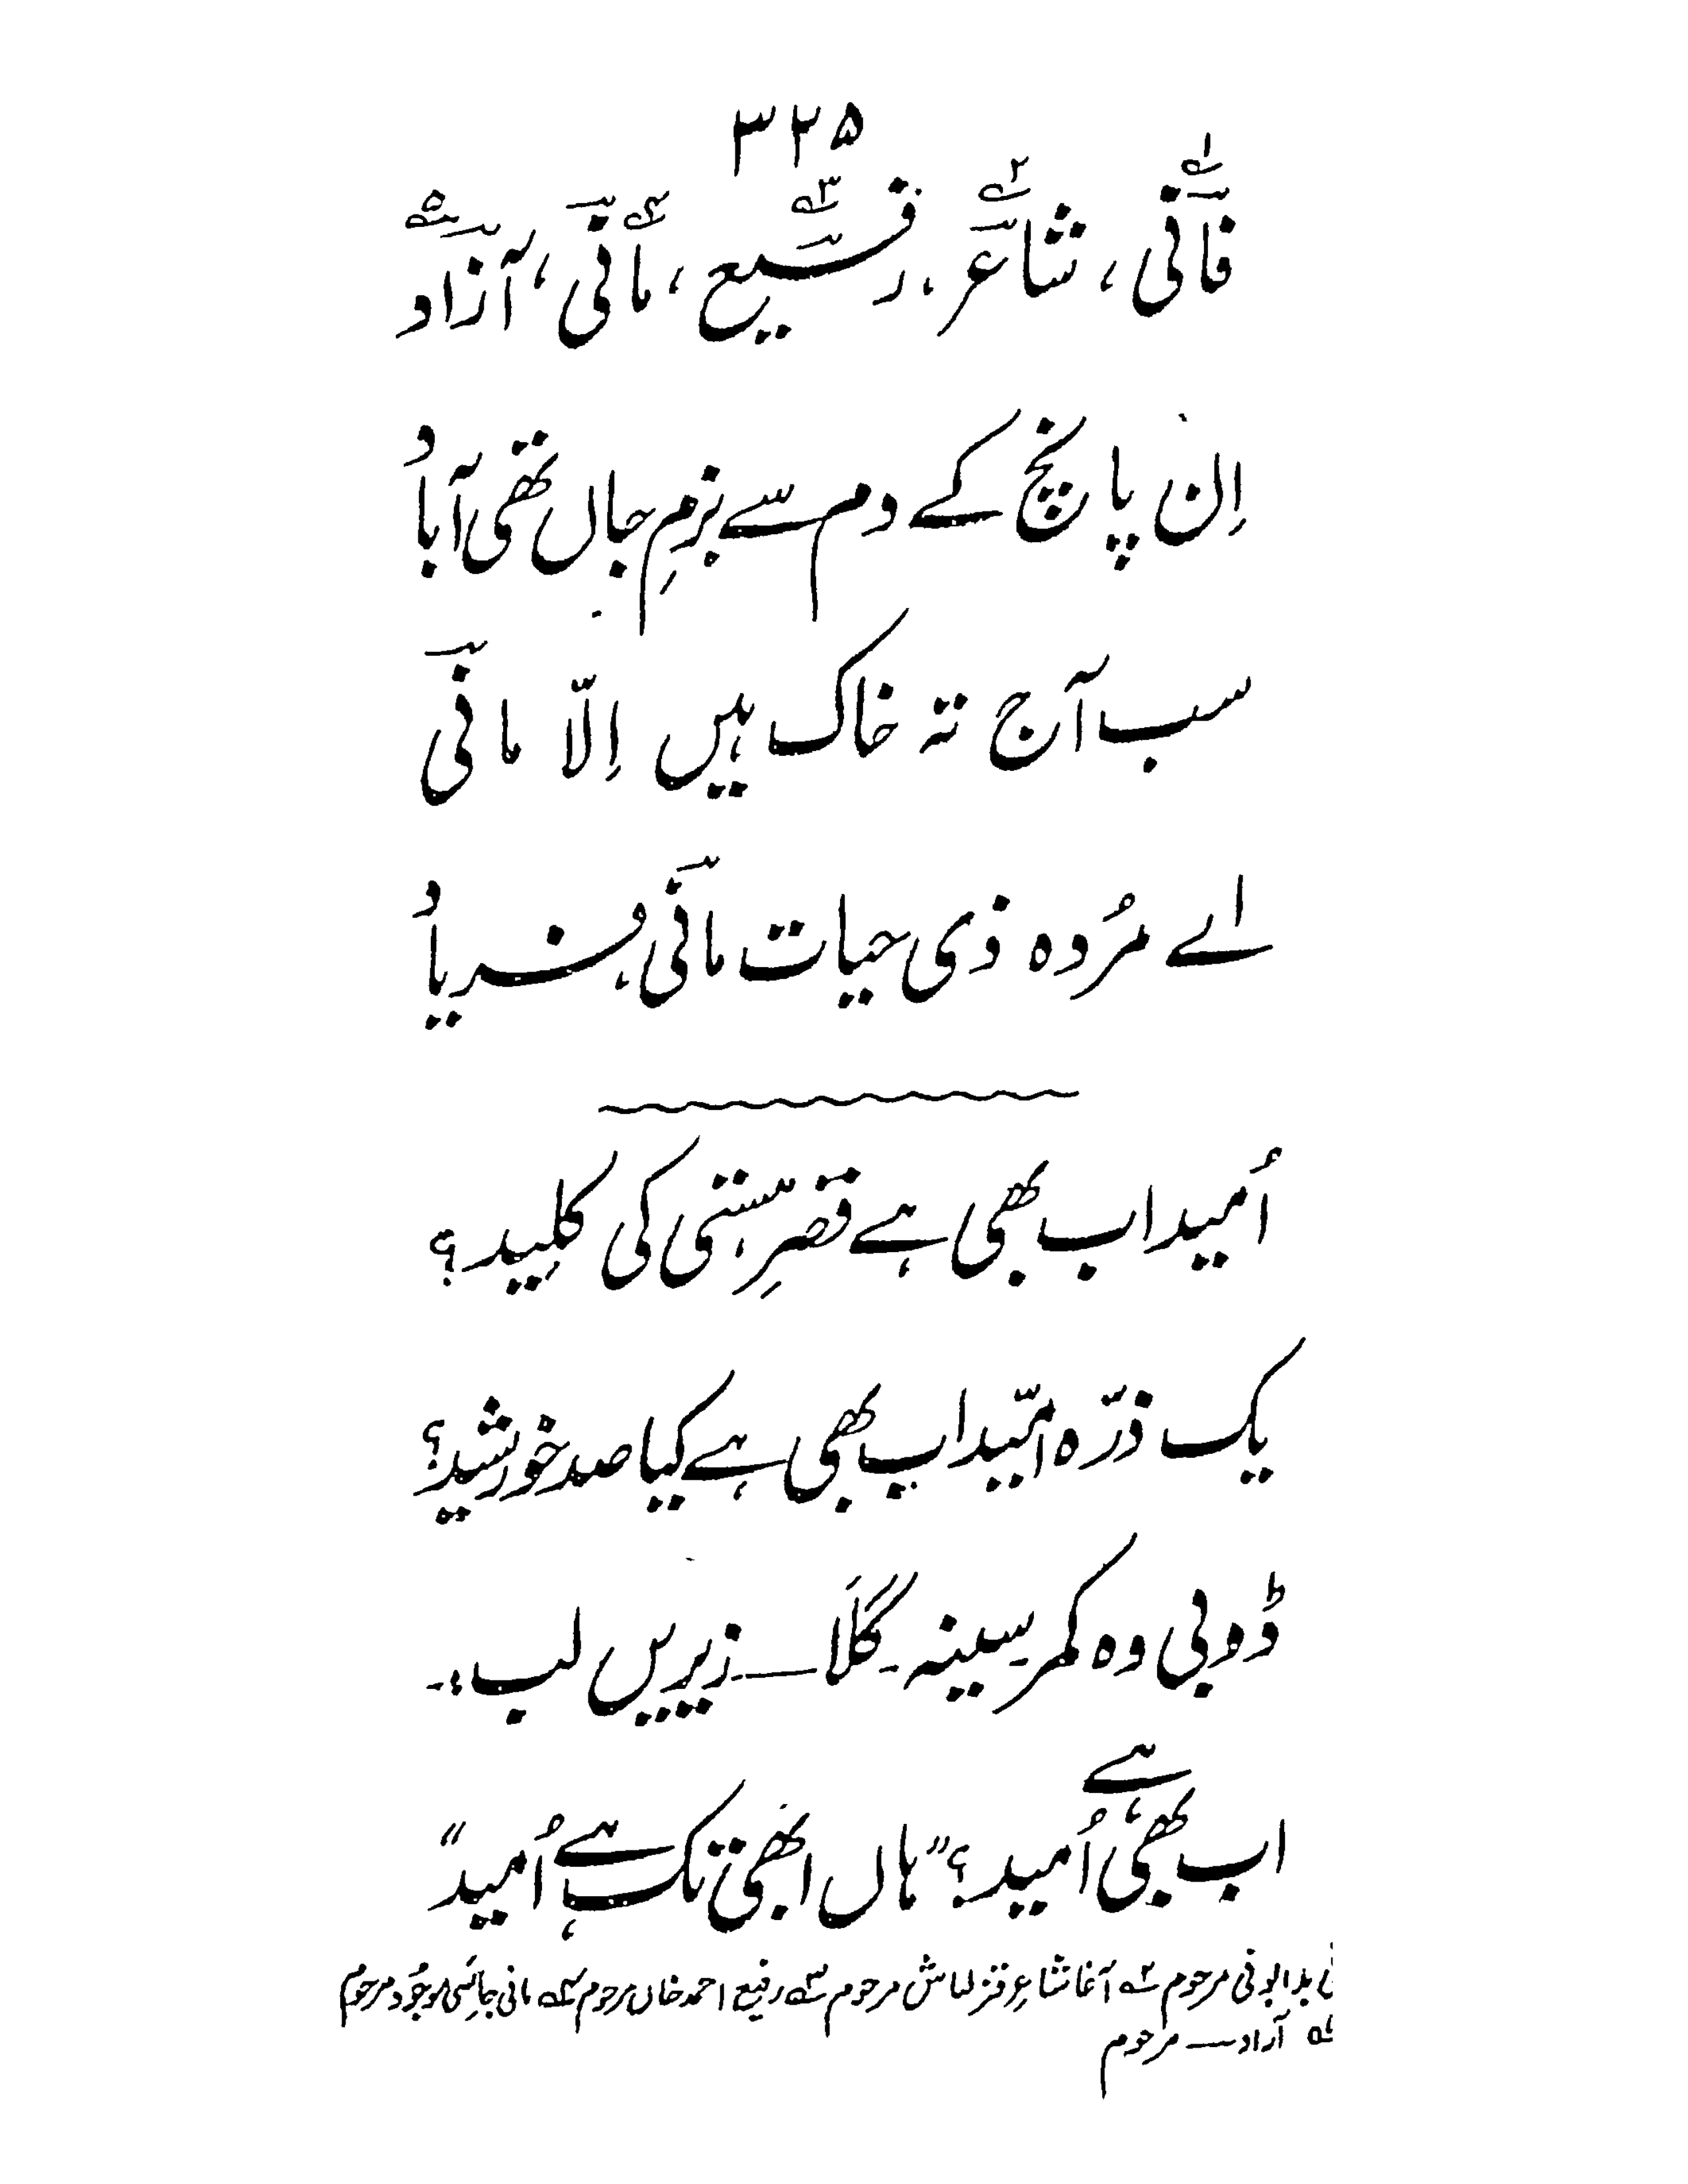 ۳۲۵
فانؔی۱، شاعرؔ۲، رفیعؔ۳، مانیؔ۴، آزادؔ۵
اِن پانچ کے دم سے بزمِ جاں تھی آباد
سب آج تہ خاک ہیں اِلّا مانیؔ
اے مُردہ ذی حیات مانیؔ، فریاد
اُمید اب بھی ہے قصرِ ہستی کی کلِید؟
یک ذرّہ امّید اب بھی ہے کیا صد خورشید؟
ڈوبی وہ کمر۔ سینہ۔ گلَا — زیریں لب ۔۔
اب بھی ہے اُمید؟ "ہاں ابھی تک ہے اُمید"
بدایونی مرحوم ۲؎ آغا شاعر قزلباش مرحوم ۳؎ رفیع احمد خاں مرحوم ۴؎ مانی جائسی موجُود مرحوم
۵؎ آزاد — مرحوم